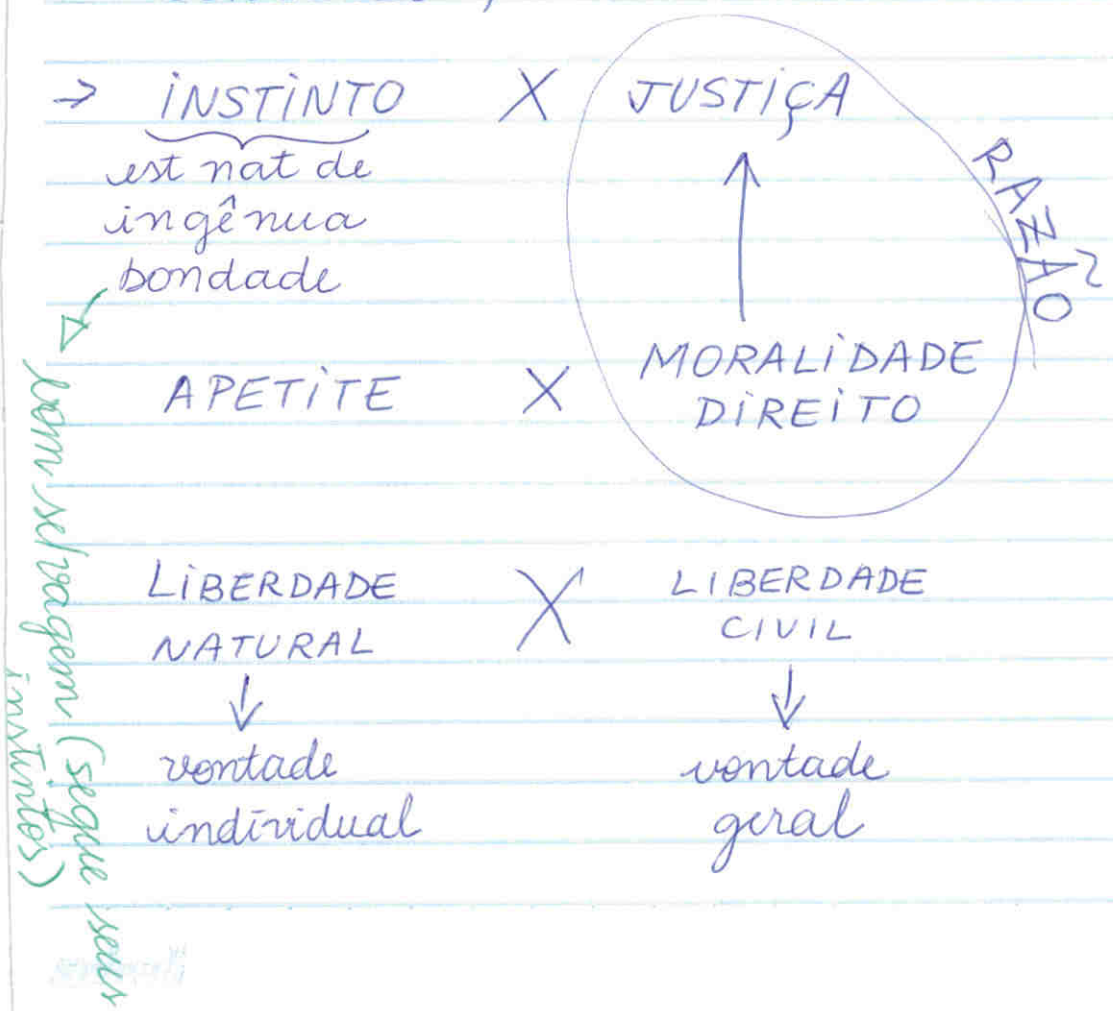 → INSTINTO X JUSTIÇA
est nat de
ingênua
bondade
RAZÃO
APETITE X MORALIDADE
DIREITO
bom selvagem (segue seus
instintos)
LIBERDADE
NATURAL
X
LIBERDADE
CIVIL
↓
vontade
individual
↓
vontade
geral